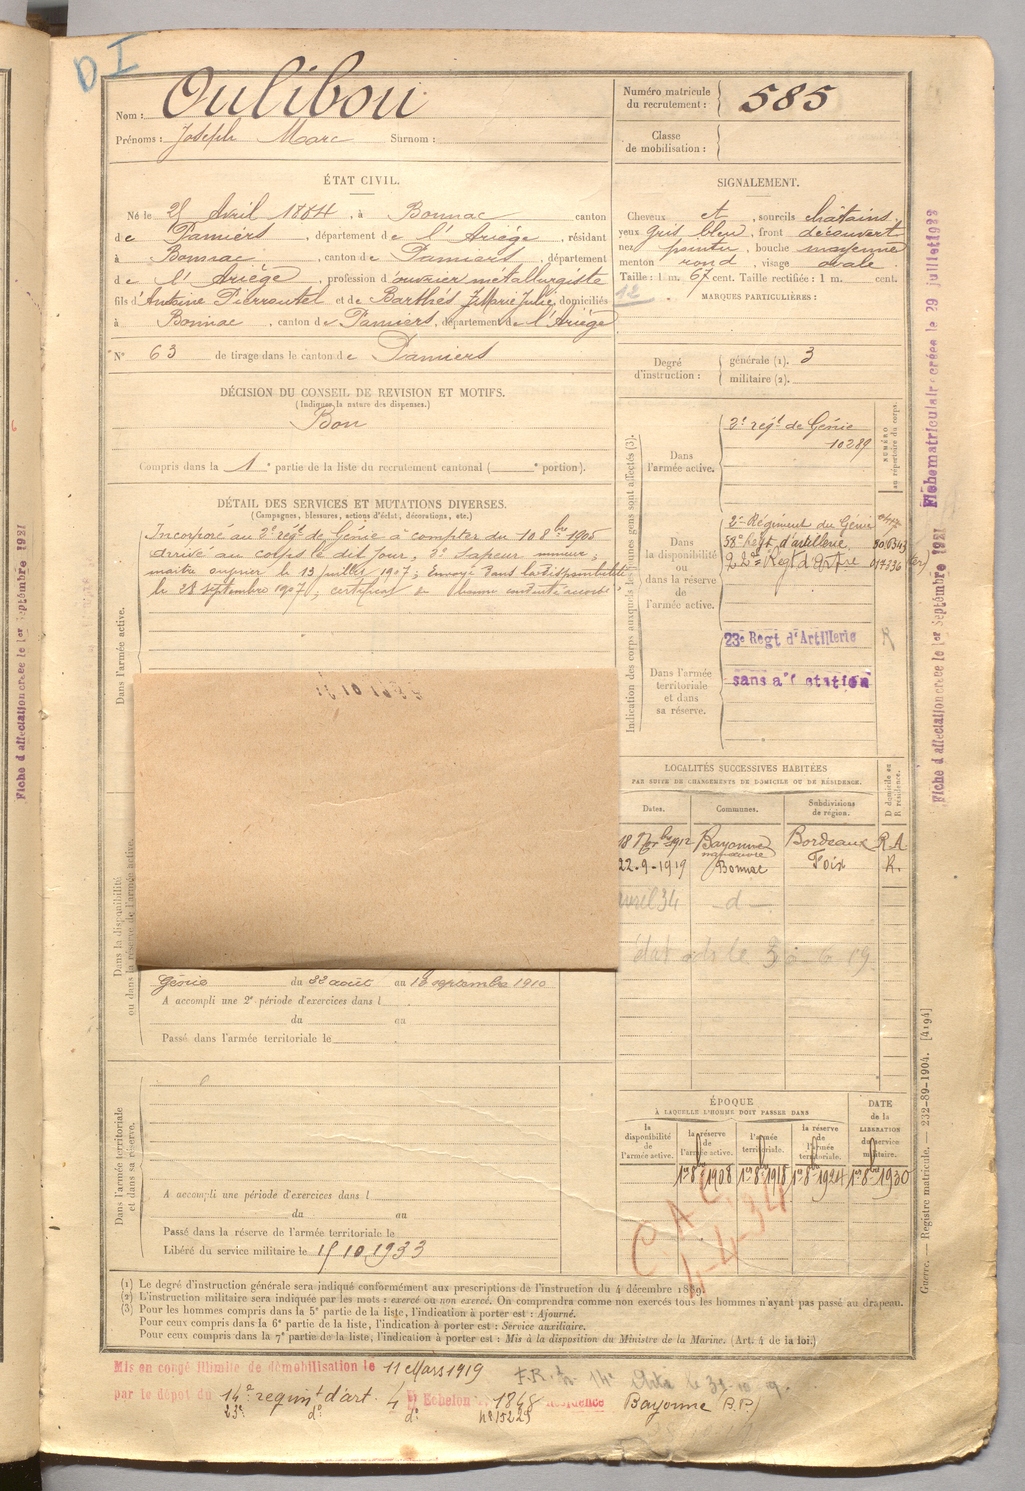 D I
Nom : Oulibou
Prénoms : Joseph Marc Surnom :
Numéro matricule
du recrutement : 585
Classe
de mobilisation :
ÉTAT CIVIL.
Né le Avril 1884, à Bonnac canton
de Pamiers, département de l'Ariège, résidant
à Bonnac, canton de Pamiers, département
de l'Ariège, profession d'ouvrier métallurgiste
fils d'Antoine Pierre et de Barthés Marie Julie, domiciliés
à Bonnac, canton de Pamiers, département de l'Ariège
N° 63 de tirage dans le canton de Pamiers
SIGNALEMENT.
Cheveux et, sourcils châtains
yeux gris bleu, front découvert
nez pointu, bouche moyenne
menton rond, visage ovale
Taille : 1 m. 67 cent. Taille rectifiée : 1 m. cent.
12
MARQUES PARTICULIÈRES :
Degré
d'instruction :
générale (1). 3
militaire (2).
DÉCISION DU CONSEIL DE REVISION ET MOTIFS.
(Indiquer la nature des dispenses.)
Bon
Compris dans la 1e partie de la liste du recrutement cantonal ( e portion).
DÉTAIL DES SERVICES ET MUTATIONS DIVERSES.
(Campagnes, blessures, actions d'éclat, décorations, etc.)
Incorporé au 2e régt de Génie à compter du 10 8bre 1905
arrivé au corps le dit jour, 2e Sapeur mineur,
maître ouvrier le 13 juillet 1907; Envoyé dans la disponibilité
le 28 septembre 1907, certificat de Bonne conduite accordé
Dans l'armée active.
Dans la disponibilité
ou dans la réserve de l'armée active.
Génie du 22 août au 18 septembre 1910
A accompli une 2e période d'exercices dans l
du au
Passé dans l'armée territoriale le
Dans l'armée territoriale
et dans sa réserve.
A accompli une période d'exercices dans l
du au
Passé dans la réserve de l'armée territoriale le
Libéré du service militaire le 15 10 1933
Indication des corps auxquels les jeunes gens sont affectés (3).
NUMÉRO
au répertoire du corps.
Dans
l'armée active.
2e régt de Génie
10289
Dans
la disponibilité
ou
dans la réserve
de
l'armée active.
2e Régiment du Génie
58e Régt d'artillerie
Régt d'Art
23e Regt d'Artillerie
R
Dans l'armée
territoriale
et dans
sa réserve.
sans affectation
LOCALITÉS SUCCESSIVES HABITÉES
PAR SUITE DE CHANGEMENTS DE DOMICILE OU DE RÉSIDENCE.
Dates. Communes. Subdivisions
de région.
D domicile ou
R résidence.
18 1912 Bayonne Bordeaux R.A
22-9-1919 Bonnac Foix R.
avril 34 -d-
ÉPOQUE
À LAQUELLE L'HOMME DOIT PASSER DANS
la
disponibilité
de
l'armée active.
la réserve
de
l'armée active.
l'armée
territoriale.
la réserve
de
l'armée
territoriale.
DATE
de la
LIBÉRATION
du service
militaire.
1er 8bre 1908 1er 8bre 1918 1er 8bre 1924 1er 8bre 1930
C A C
4-4-34
(1) Le degré d'instruction générale sera indiqué conformément aux prescriptions de l'instruction du 4 décembre 1889.
(2) L'instruction militaire sera indiquée par les mots : exercé ou non exercé. On comprendra comme non exercés tous les hommes n'ayant pas passé au drapeau.
(3) Pour les hommes compris dans la 5e partie de la liste, l'indication à porter est : Ajourné.
Pour ceux compris dans la 6e partie de la liste, l'indication à porter est : Service auxiliaire.
Pour ceux compris dans la 7e partie de la liste, l'indication à porter est : Mis à la disposition du Ministre de la Marine. (Art. 4 de la loi.)
Mis en congé illimité de démobilisation le 11 Mars 1919
par le dépôt du 14e régiment d'art. 4 Echelon 1848 Résidence Bayonne (B.P.)
23e do do No 15225
Fiche matriculaire créée le 29 juillet 1933
Fiche d'affectation créée le 1er Septembre 1921
Guerre. — Registre matricule. — 232-89-1904. [4194]
Fiche d'affectation créée le 1er Septembre 1921